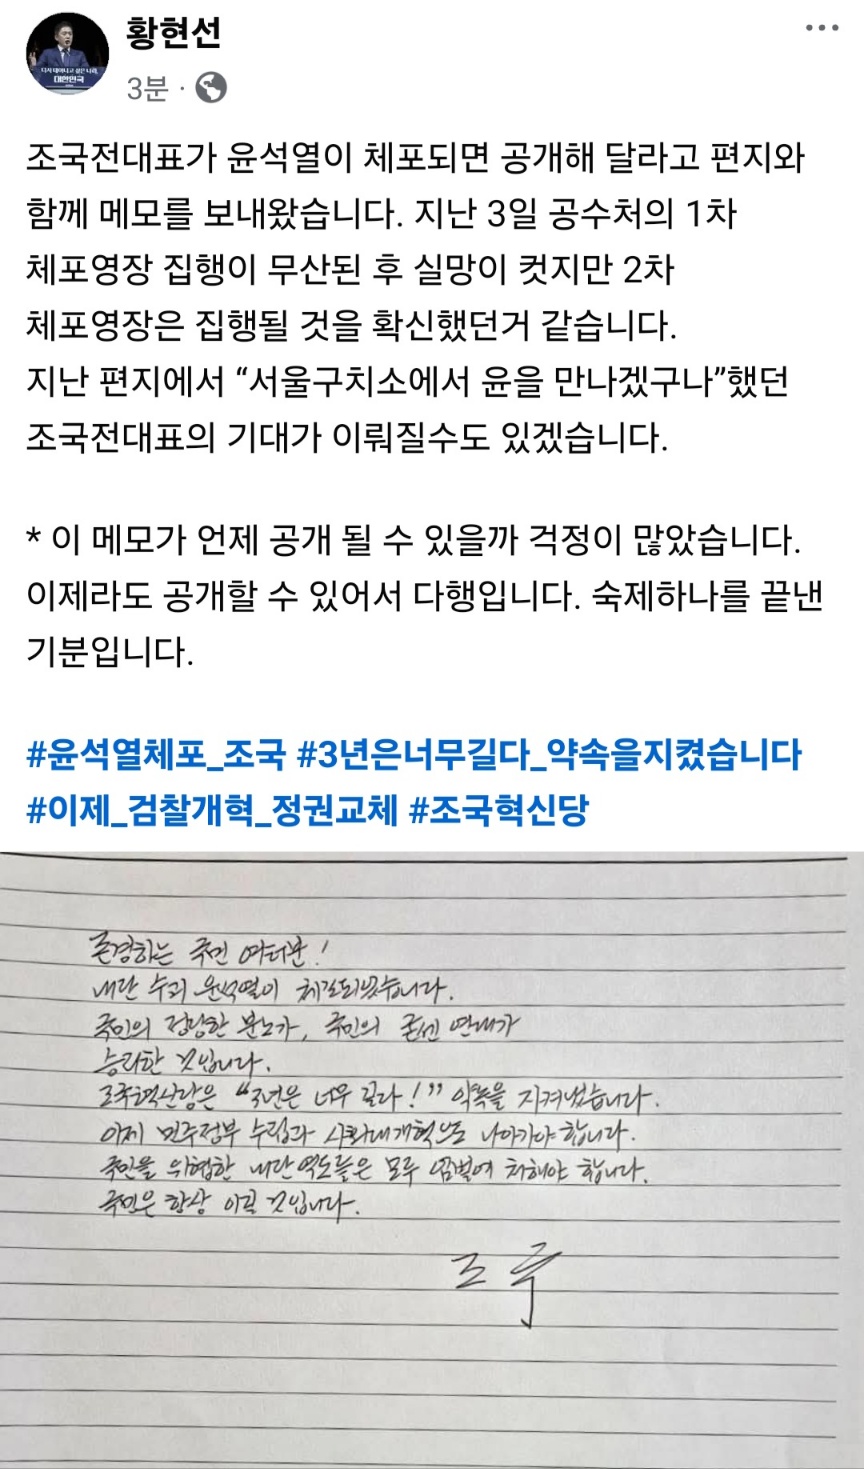 황현선
3분 ·
조국전대표가 윤석열이 체포되면 공개해 달라고 편지와
함께 메모를 보내왔습니다. 지난 3일 공수처의 1차
체포영장 집행이 무산된 후 실망이 컷지만 2차
체포영장은 집행될 것을 확신했던거 같습니다.
지난 편지에서 “서울구치소에서 윤을 만나겠구나”했던
조국전대표의 기대가 이뤄질수도 있겠습니다.
* 이 메모가 언제 공개 될 수 있을까 걱정이 많았습니다.
이제라도 공개할 수 있어서 다행입니다. 숙제하나를 끝낸
기분입니다.
#윤석열체포_조국 #3년은너무길다_약속을지켰습니다
#이제_검찰개혁_정권교체 #조국혁신당
존경하는 국민 여러분!
내란 수괴 윤석열이 체포되었습니다.
국민의 정당한 분노가, 국민의 굳센 연대가
승리한 것입니다.
조국혁신당은 “3년은 너무 길다!” 약속을 지켜냈습니다.
이제 민주정부 수립과 사회대개혁으로 나아가야 합니다.
국민을 위협한 내란 역도들은 모두 엄벌에 처해야 합니다.
국민은 항상 이길 것입니다.
조국